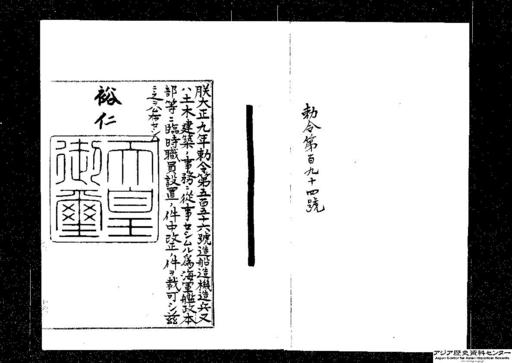 勅令第百九十四號
朕大正九年勅令第五百五十六號造船造機造兵又
ハ土木建築ノ事務ニ從事セシムル爲海軍艦政本
部等ニ臨時職員設置ノ件中改正ノ件ヲ裁可シ茲
ニ之ヲ公布セシム
裕仁
天皇
御璽
アジア歴史資料センター
Japan Center for Asian Historical Records